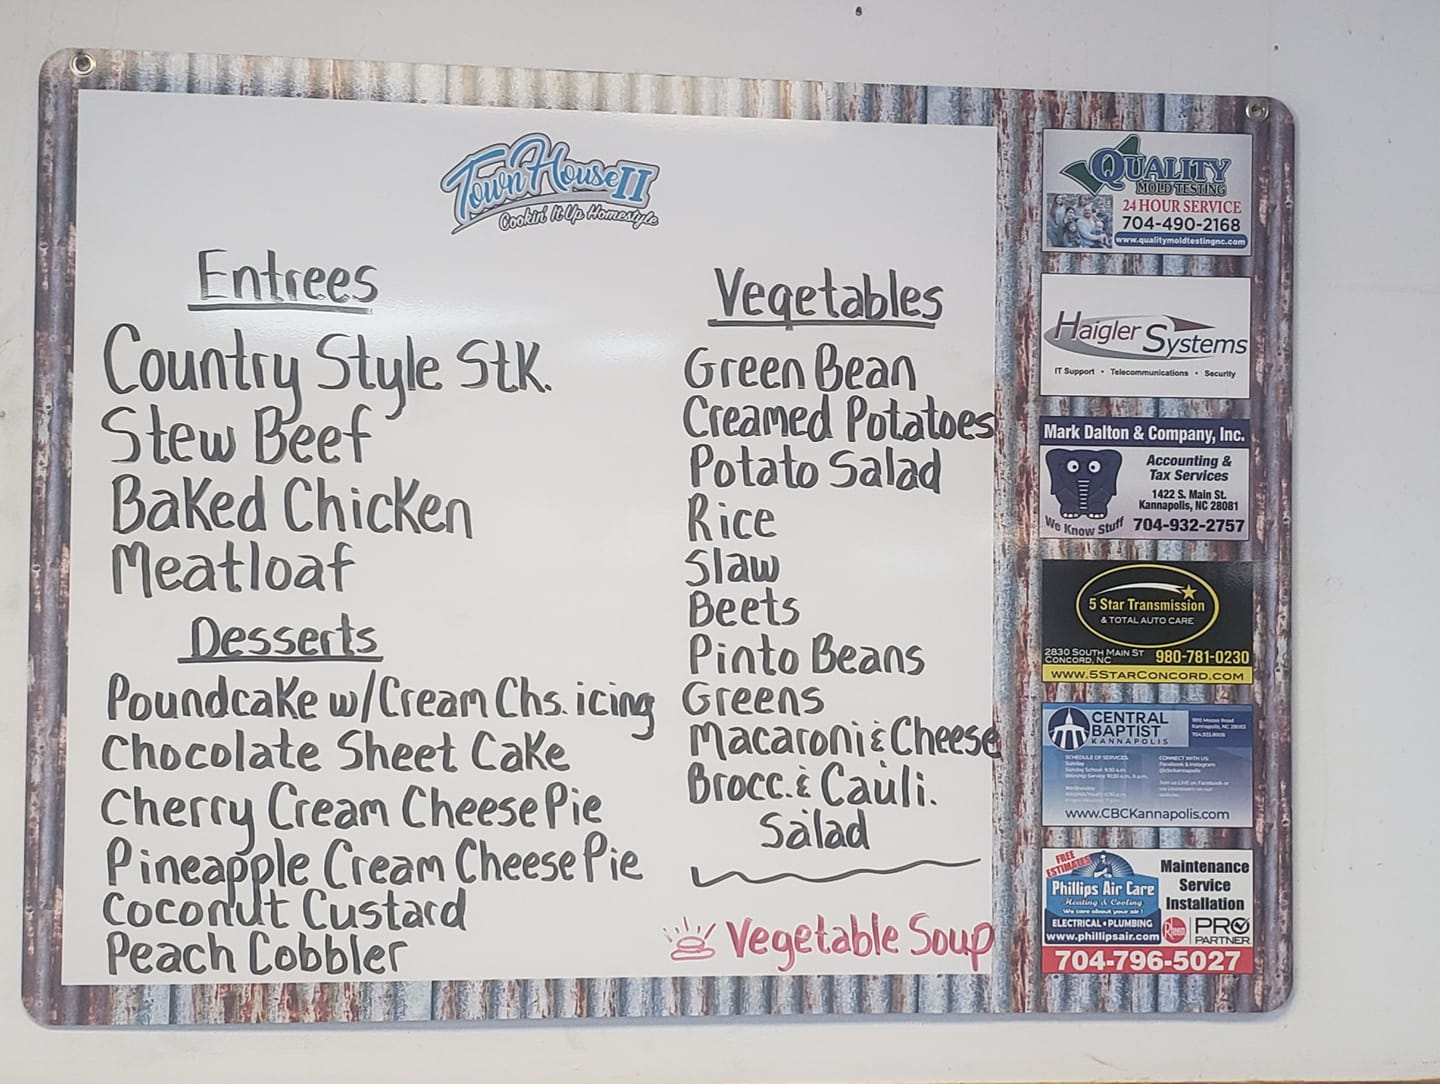 Town House II
Cookin' It Up Homestyle
Entrees
Country Style Stk.
Stew Beef
Baked Chicken
Meatloaf
Desserts
Poundcake w/Cream Chs. icing
Chocolate Sheet Cake
Cherry Cream Cheese Pie
Pineapple Cream Cheese Pie
Coconut Custard
Peach Cobbler
Vegetables
Green Bean
Creamed Potatoes
Potato Salad
Rice
Slaw
Beets
Pinto Beans
Greens
Macaroni & Cheese
Brocc. & Cauli.
Salad
Vegetable Soup
QUALITY
MOLD TESTING
24 HOUR SERVICE
704-490-2168
www.qualitymoldtestingnc.com
Haigler Systems
IT Support • Telecommunications • Security
Mark Dalton & Company, Inc.
Accounting &
Tax Services
1422 S. Main St.
Kannapolis, NC 28081
We Know Stuff
704-932-2757
5 Star Transmission
& TOTAL AUTO CARE
2830 SOUTH MAIN ST
CONCORD, NC
980-781-0230
WWW.5STARCONCORD.COM
CENTRAL
BAPTIST
KANNAPOLIS
SCHEDULE OF SERVICES:
Sunday
CONNECT WITH US:
Facebook & Instagram
www.CBCKannapolis.com
FREE
ESTIMATES
Phillips Air Care
Heating & Cooling
We care about your air!
ELECTRICAL • PLUMBING
www.phillipsair.com
Maintenance
Service
Installation
Rheem
PRO
PARTNER
704-796-5027